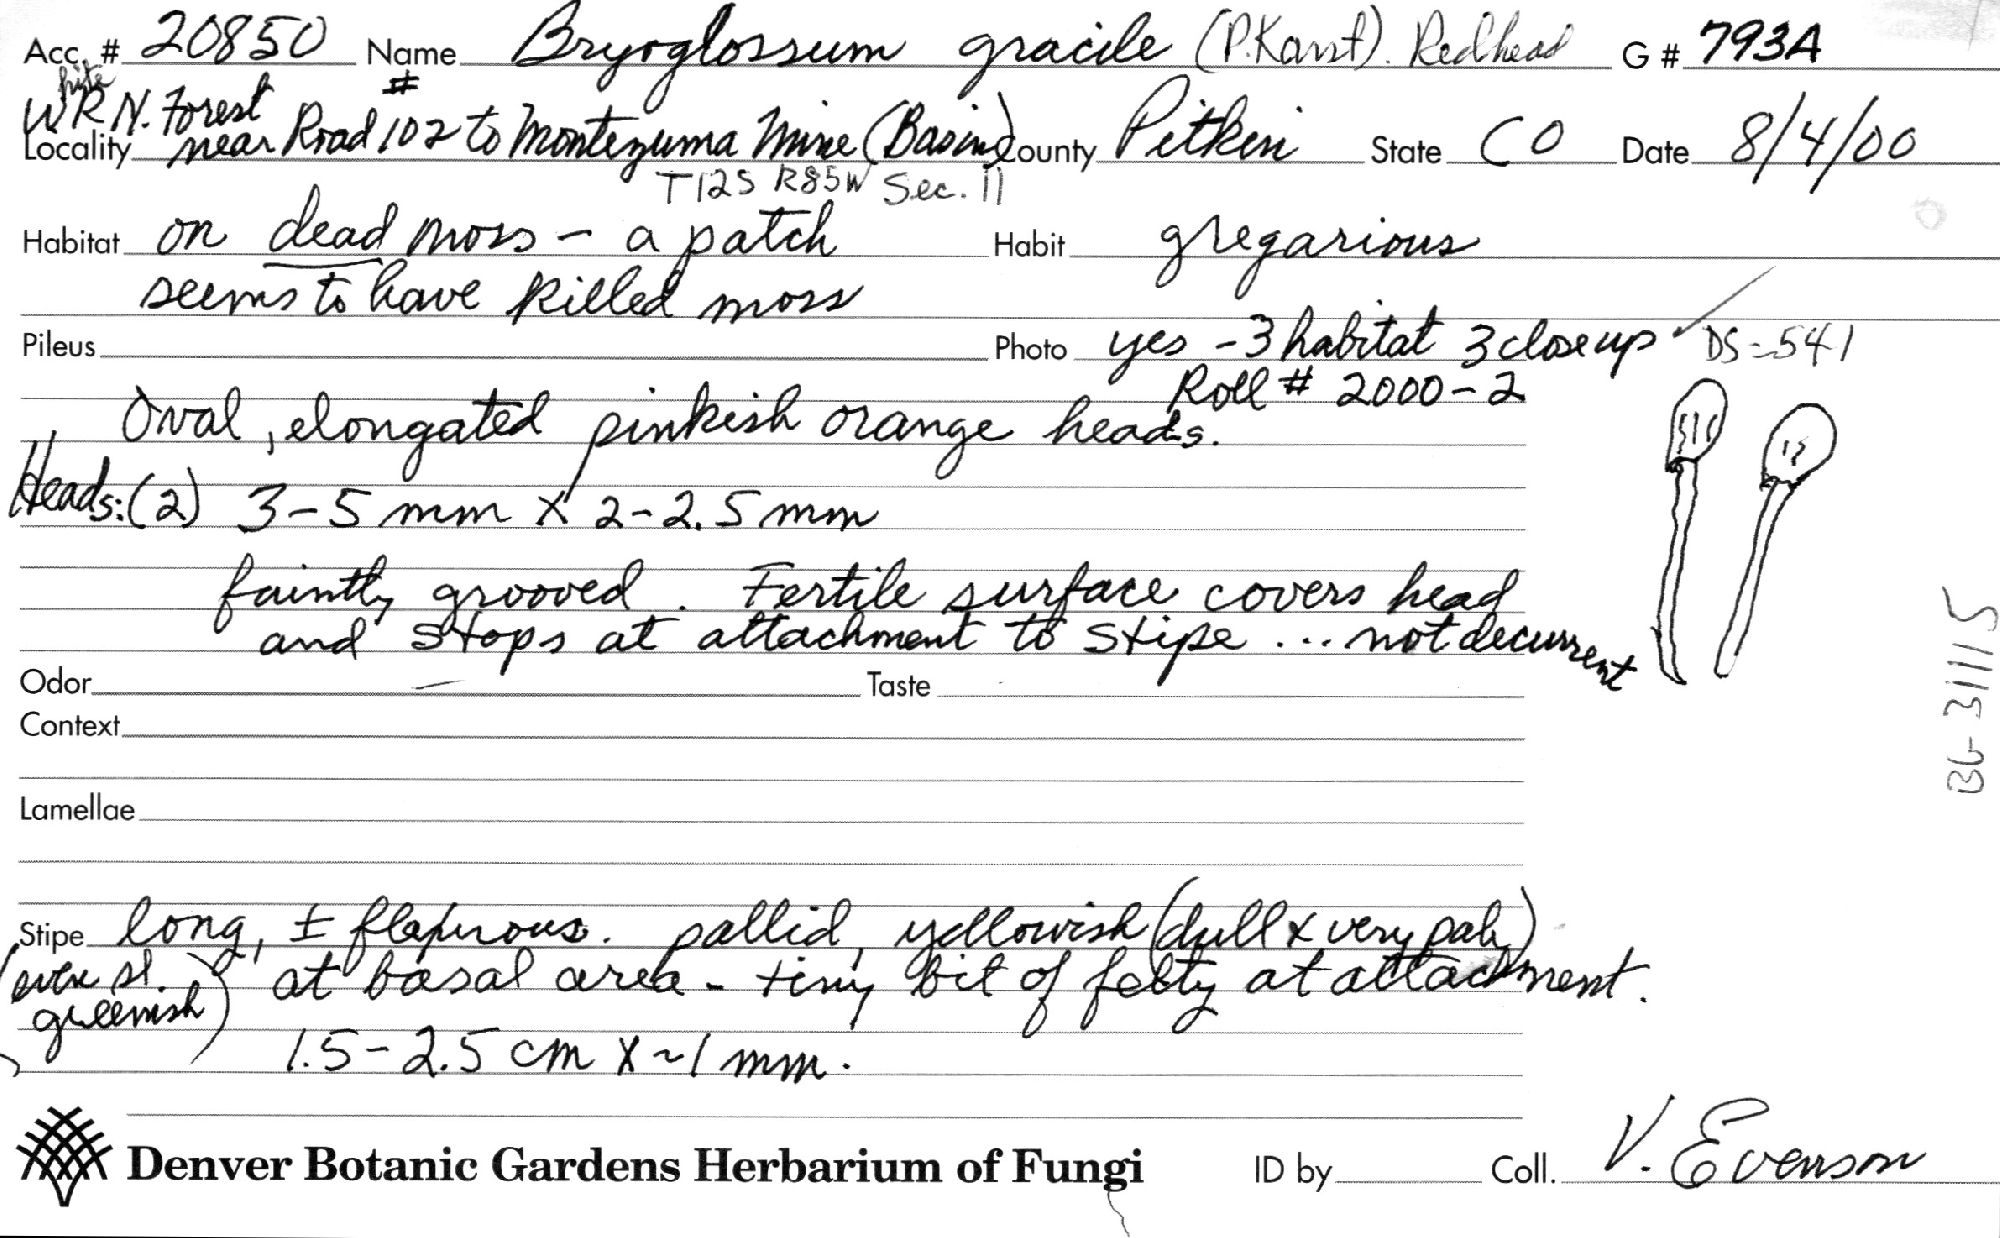 Acc. # 20850 Name Bryoglossum gracile (P.Karst). Redhead G # 793A
White
WRN. Forest
Locality near Road # 102 to Montezuma Mine (Basin) County Pitkin State CO Date 8/4/00
T12S R85W Sec. 11
Habitat on dead moss – a patch Habit gregarious
seems to have killed moss
Pileus Photo yes - 3 habitat 3 closeup ✓ DS-541
Roll # 2000-2
Oval, elongated pinkish orange heads.
Heads: (2) 3-5 mm X 2-2.5 mm
faintly grooved. Fertile surface covers head
and stops at attachment to stipe ... not decurrent
Odor — Taste
Context
Lamellae
Stipe long, ± pallid, yellowish (dull & very pale)
(even sl. greenish) at basal area - tiny bit of felty at attachment.
1.5-2.5 cm X ~1 mm.
Denver Botanic Gardens Herbarium of Fungi ID by Coll. V. Evenson
BG-31115